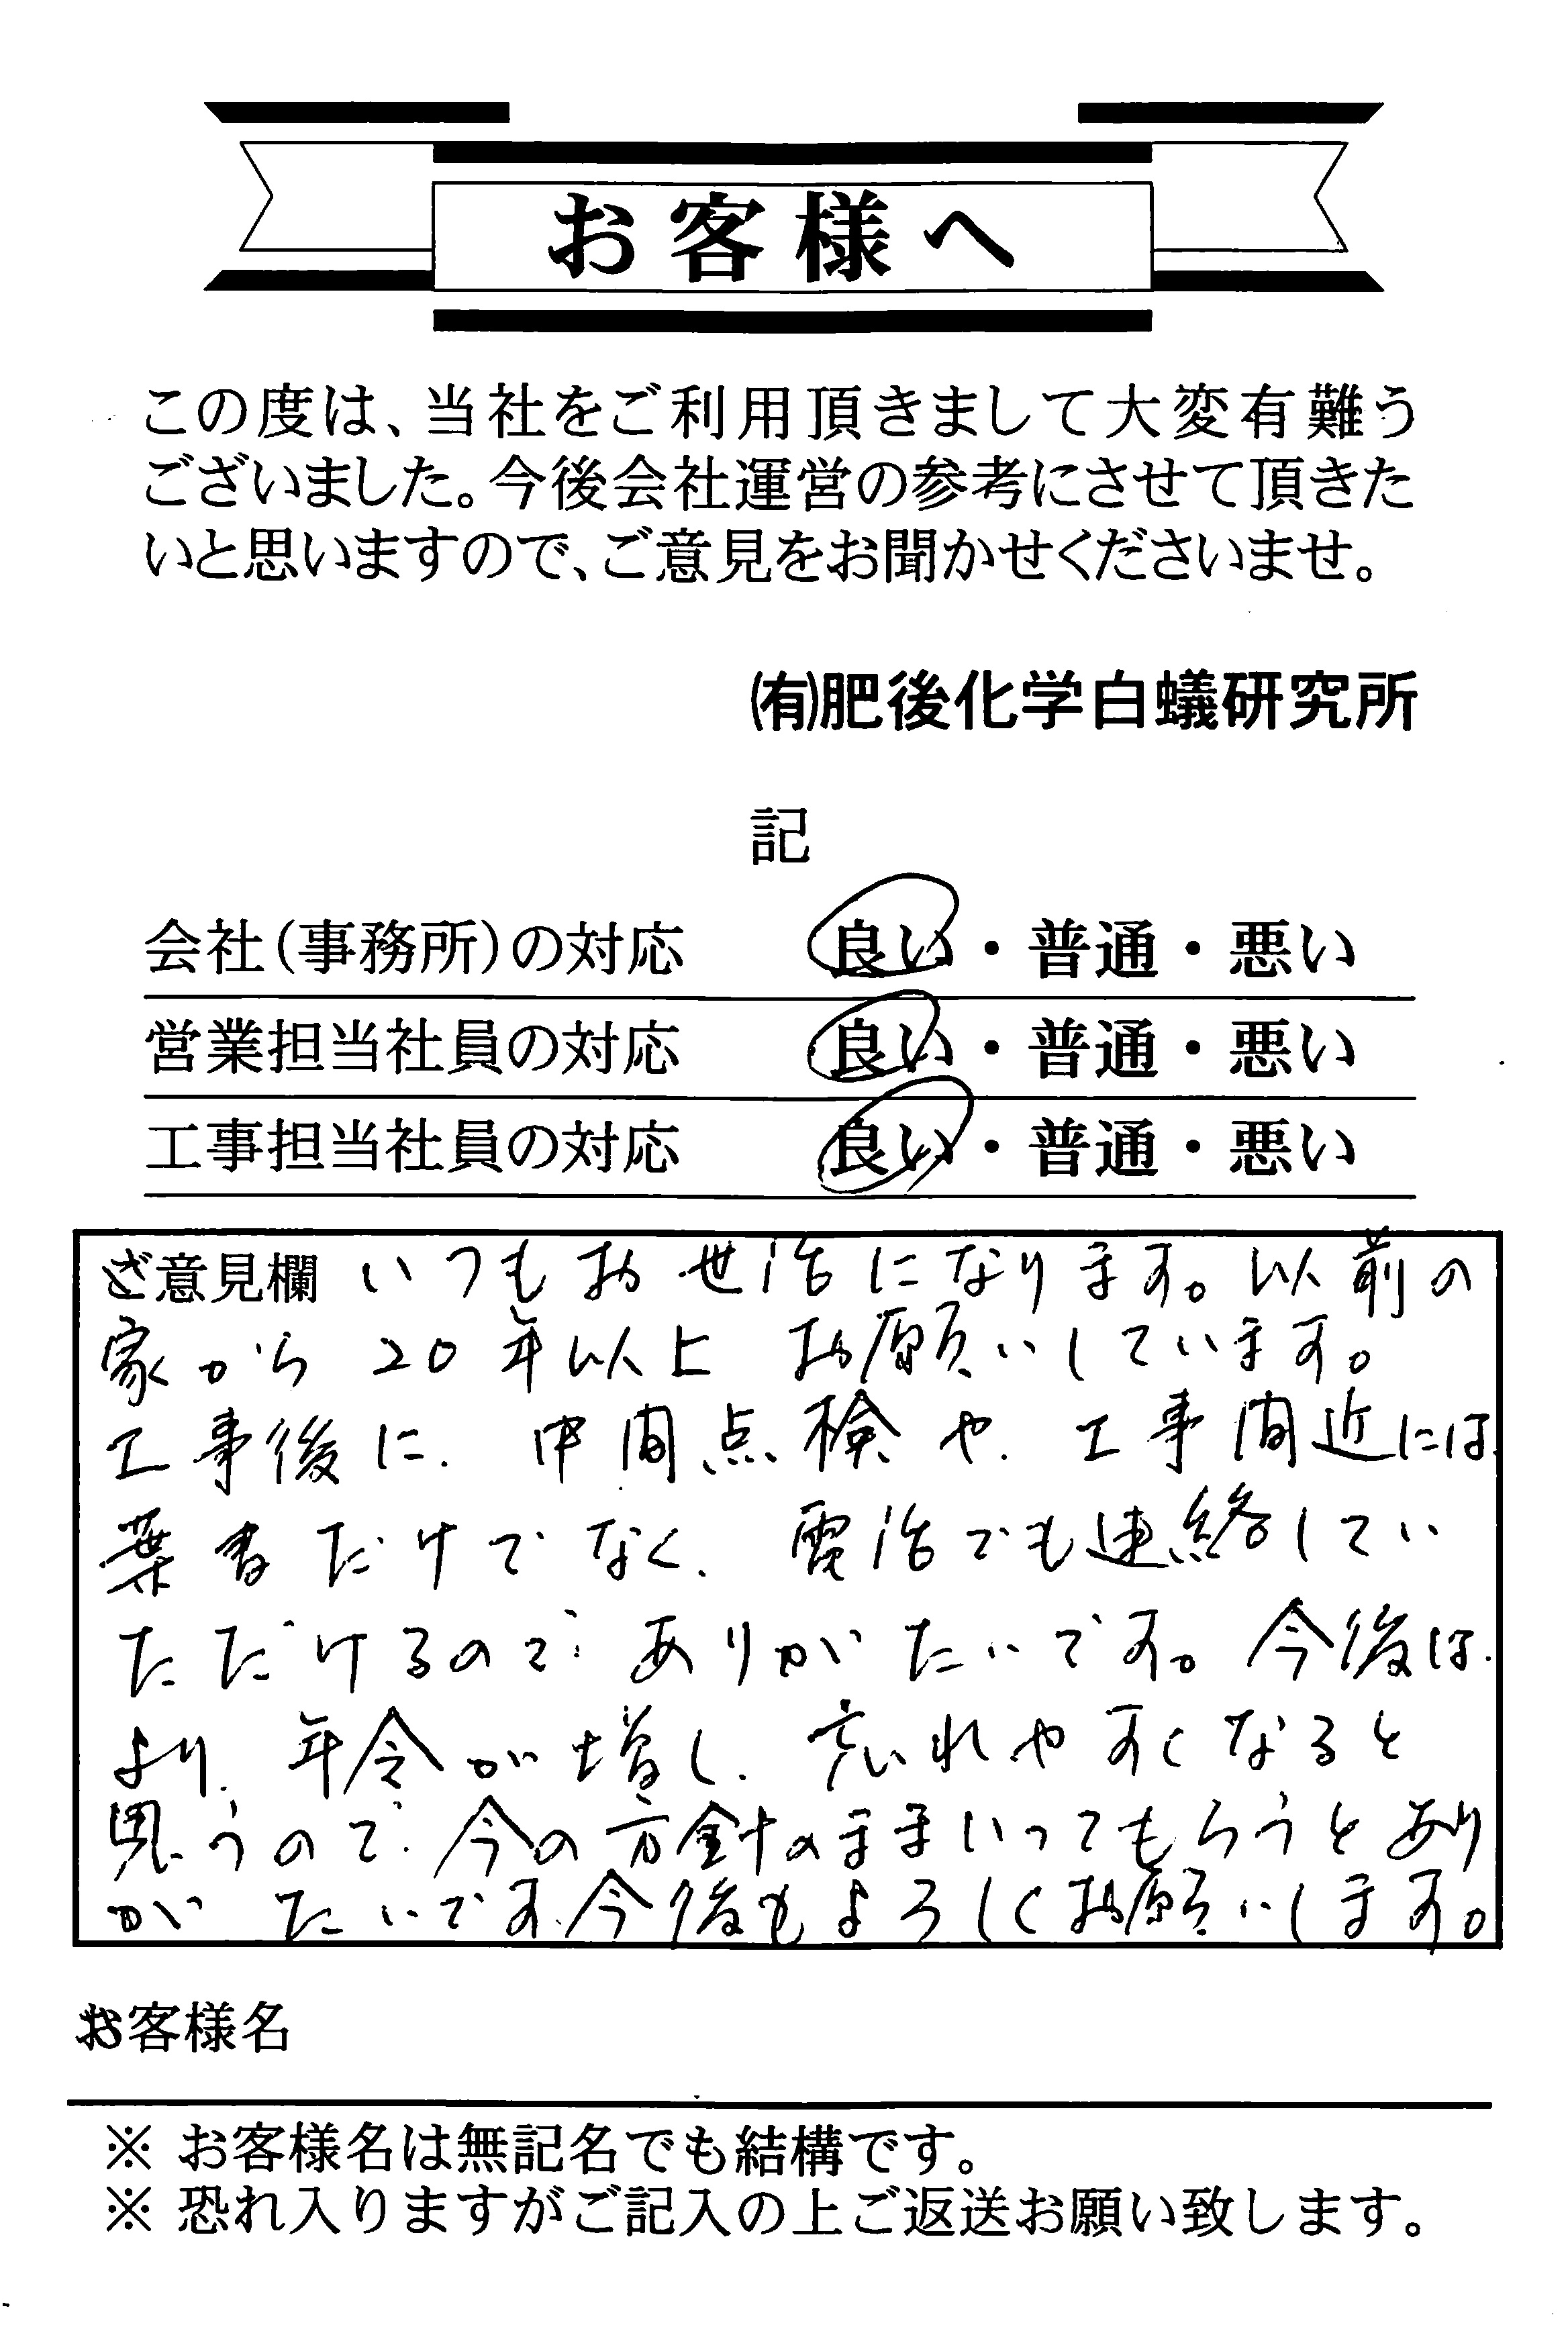 お客様へ
この度は、当社をご利用頂きまして大変有難う
ございました。今後会社運営の参考にさせて頂きた
いと思いますので、ご意見をお聞かせくださいませ。
㈲肥後化学白蟻研究所
記
会社(事務所)の対応 良い・普通・悪い
営業担当社員の対応 良い・普通・悪い
工事担当社員の対応 良い・普通・悪い
ご意見欄 いつもお世話になります。以前の
家から20年以上 お願いしています。
工事後に、中間点検や、工事間近には、
葉書だけでなく、電話でも連絡してい
ただけるので、ありがたいです。今後は、
より、年令が増し、忘れやすくなると
思うので、今の方針のままいってもらうとあり
がたいです。今後もよろしくお願いします。
お客様名
※ お客様名は無記名でも結構です。
※ 恐れ入りますがご記入の上ご返送お願い致します。